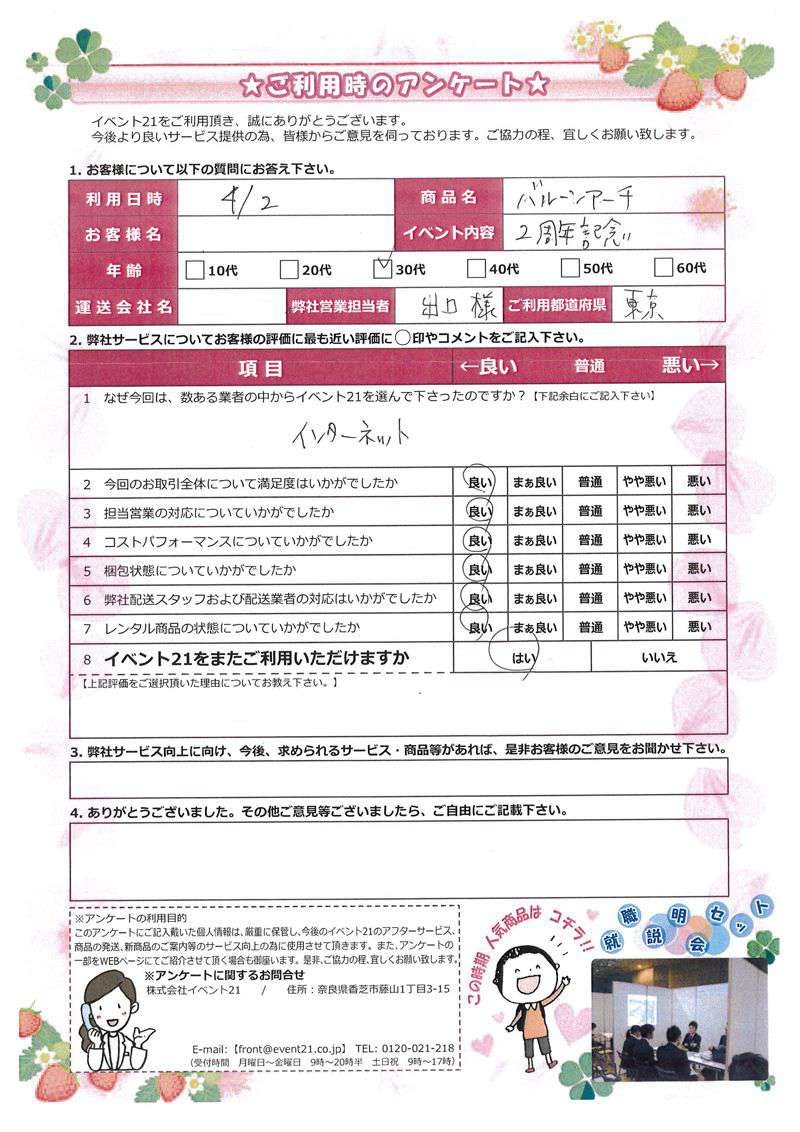 ★ご利用時のアンケート★
イベント21をご利用頂き、誠にありがとうございます。
今後より良いサービス提供の為、皆様からご意見を伺っております。ご協力の程、宜しくお願い致します。
1. お客様について以下の質問にお答え下さい。
利用日時 4/2 商品名 バルーンアーチ
お客様名 イベント内容 2周年記念
年齢 10代 20代 30代 40代 50代 60代
運送会社名 弊社営業担当者 出口様 ご利用都道府県 東京
2. 弊社サービスについてお客様の評価に最も近い評価に◯印やコメントをご記入下さい。
項目 ←良い 普通 悪い→
1 なぜ今回は、数ある業者の中からイベント21を選んで下さったのですか？【下記余白にご記入下さい】
インターネット
2 今回のお取引全体について満足度はいかがでしたか 良い まぁ良い 普通 やや悪い 悪い
3 担当営業の対応についていかがでしたか 良い まぁ良い 普通 やや悪い 悪い
4 コストパフォーマンスについていかがでしたか 良い まぁ良い 普通 やや悪い 悪い
5 梱包状態についていかがでしたか 良い まぁ良い 普通 やや悪い 悪い
6 弊社配送スタッフおよび配送業者の対応はいかがでしたか 良い まぁ良い 普通 やや悪い 悪い
7 レンタル商品の状態についていかがでしたか 良い まぁ良い 普通 やや悪い 悪い
8 イベント21をまたご利用いただけますか はい いいえ
【上記評価をご選択頂いた理由についてお教え下さい。】
3. 弊社サービス向上に向け、今後、求められるサービス・商品等があれば、是非お客様のご意見をお聞かせ下さい。
4. ありがとうございました。その他ご意見等ございましたら、ご自由にご記載下さい。
※アンケートの利用目的
このアンケートにご記入戴いた個人情報は、厳重に保管し、今後のイベント21のアフターサービス、
商品の発送、新商品のご案内等のサービス向上の為に使用させて頂きます。また、アンケートの
一部をWEBページにてご紹介させて頂く場合も御座います。是非、ご協力の程、宜しくお願い致します。
※アンケートに関するお問合せ
株式会社イベント21 / 住所：奈良県香芝市藤山1丁目3-15
E-mail:【front@event21.co.jp】 TEL: 0120-021-218
（受付時間 月曜日～金曜日 9時～20時半 土日祝 9時～17時）
この時期 人気商品は コチラ!!
就職説明会セット